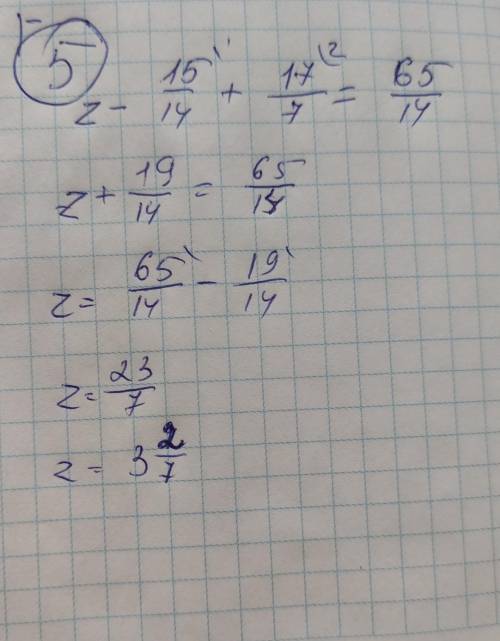 5
z - 15/14 + 17/7 = 65/14
z + 19/14 = 65/14
z = 65/14 - 19/14
z = 23/7
z = 3 2/7